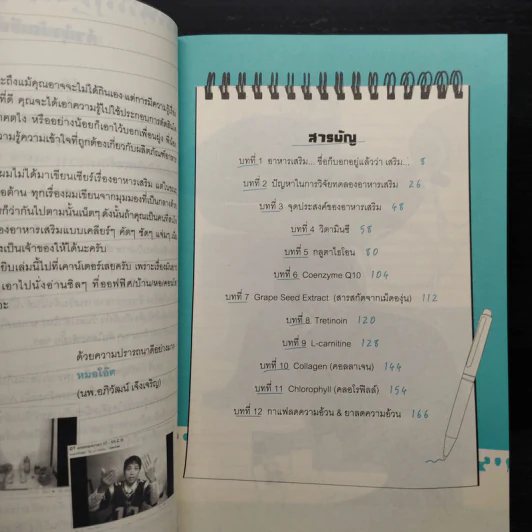 ะถึงแม้คุณอาจจะไม่ได้กินเอง แต่การมีความรู้
ที่ดี คุณจะได้เอาความรู้ไปใช้ประกอบการตัดสิน
หรืออย่างน้อยก็เอาไว้บอกเพื่อนฝูง
ความรู้ความเข้าใจที่ถูกต้องเกี่ยวกับผลิตภัณฑ์
ผมไม่ได้มาเขียนเชียร์เรื่องอาหารเสริม
ต่อต้าน ทุกเรื่องผมเขียนจากมุมมองที่เป็นกลาง
ก็ว่ากันไปตามนั้น ดังนั้นถ้าคุณเป็นคน
องอาหารเสริมแบบเคลียร์ๆ คัตๆ ชัดๆ
งเป็นเจ้าของให้ได้นะครับ
ยิบเล่มนี้ไปที่เคาน์เตอร์เลยครับ เพราะเรื่อง
เอาไปนั่งอ่านชิลๆ ที่ออฟฟิศ/บ้าน/หอ
ด้วยความปรารถนาดีอย่าง
หมอโอ๊ต
(นพ.อภิวัฒน์ เจิ่งเจริญ)
สารบัญ
บทที่ 1 อาหารเสริม... ชื่อก็บอกอยู่แล้วว่า เสริม... 8
บทที่ 2 ปัญหาในการวิจัยทดลองอาหารเสริม 26
บทที่ 3 จุดประสงค์ของอาหารเสริม 48
บทที่ 4 วิตามินซี 58
บทที่ 5 กลูตาไธโอน 80
บทที่ 6 Coenzyme Q10 104
บทที่ 7 Grape Seed Extract (สารสกัดจากเมล็ดองุ่น) 112
บทที่ 8 Tretinoin 120
บทที่ 9 L-carnitine 128
บทที่ 10 Collagen (คอลลาเจน) 144
บทที่ 11 Chlorophyll (คลอโรฟิลล์) 154
บทที่ 12 กาแฟลดความอ้วน & ยาลดความอ้วน 166